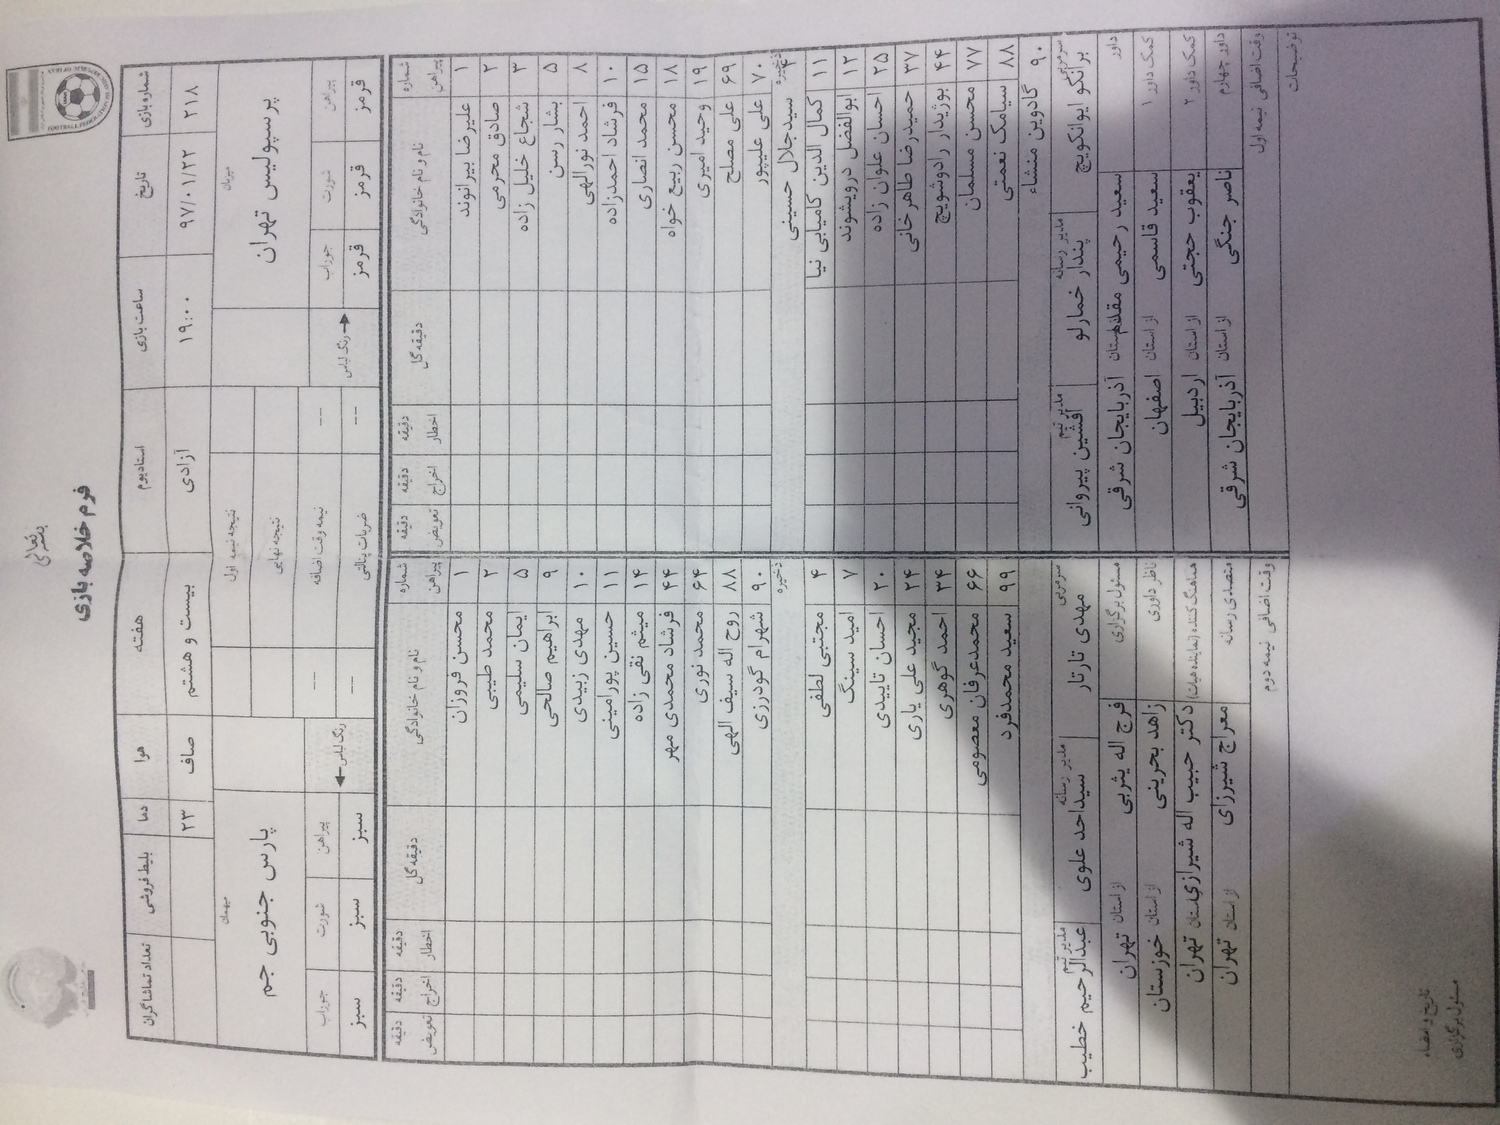 بسمه تعالی
فرم خلاصه بازی
شماره بازی تاریخ ساعت بازی استادیوم هفته هوا دما بلیط فروشی تعداد تماشاگران
۲۱۸ ۹۷/۰۱/۲۲ ۱۹:۰۰ آزادی بیست و هشتم صاف ۲۳
میزبان نتیجه نیمه اول میهمان
پرسپولیس تهران نتیجه نهایی پارس جنوبی جم
پیراهن شورت جوراب رنگ لباس -- نیمه وقت اضافه -- رنگ لباس پیراهن شورت جوراب
قرمز قرمز قرمز -- ضربات پنالتی -- سبز سبز سبز
شماره پیراهن نام و نام خانوادگی دقیقه گل دقیقه اخطار دقیقه اخراج دقیقه تعویض شماره پیراهن نام و نام خانوادگی دقیقه گل دقیقه اخطار دقیقه اخراج دقیقه تعویض
۱ علیرضا بیرانوند ۱ محسن فروزان
۲ صادق محرمی ۲ محمد طیبی
۳ شجاع خلیل زاده ۵ ایمان سلیمی
۵ بشار رسن ۹ ابراهیم صالحی
۸ احمد نورالهی ۱۰ مهدی زبیدی
۱۰ فرشاد احمدزاده ۱۱ حسین پورامینی
۱۵ محمد انصاری ۱۴ میثم نقی زاده
۱۸ محسن ربیع خواه ۴۴ فرشاد محمدی مهر
۱۹ وحید امیری ۶۴ محمد نوری
۶۹ علی مصلح ۸۸ روح اله سیف الهی
۷۰ علی علیپور ۹۰ شهرام گودرزی
ذخیره ۴ سیدجلال حسینی ذخیره
۱۱ کمال الدین کامیابی نیا ۴ مجتبی لطفی
۱۲ ابوالفضل درویشوند ۷ امید سینگ
۲۵ احسان علوان زاده ۲۰ احسان تاییدی
۳۷ حمیدرضا طاهرخانی ۲۴ مجید علی یاری
۴۴ بوژیدار رادوشویچ ۳۴ احمد گوهری
۷۷ محسن مسلمان ۶۶ محمدعرفان معصومی
۸۸ سیامک نعمتی ۹۹ سعید محمدفرد
۹۰ گادوین منشاء
سرمربی برانکو ایوانکویچ مدیر رسانه پندار خمارلو مدیر تیم افشین پیروانی سرمربی مهدی تارتار مدیر رسانه سیداحد علوی مدیر تیم عبدالرحیم خطیب
داور سعید رحیمی مقدم از استان آذربایجان شرقی مسئول برگزاری فرج اله یثربی از استان تهران
کمک داور ۱ سعید قاسمی از استان اصفهان ناظر داوری زاهد بحرینی از استان خوزستان
کمک داور ۲ یعقوب حجتی از استان اردبیل هماهنگ کننده (نماینده هیات) دکتر حبیب اله شیرازی از استان تهران
داور چهارم ناصر جنگی از استان آذربایجان شرقی متصدی رسانه معراج شیرزای از استان تهران
وقت اضافی نیمه اول وقت اضافی نیمه دوم
توضیحات
تاریخ و امضاء
مسئول برگزاری